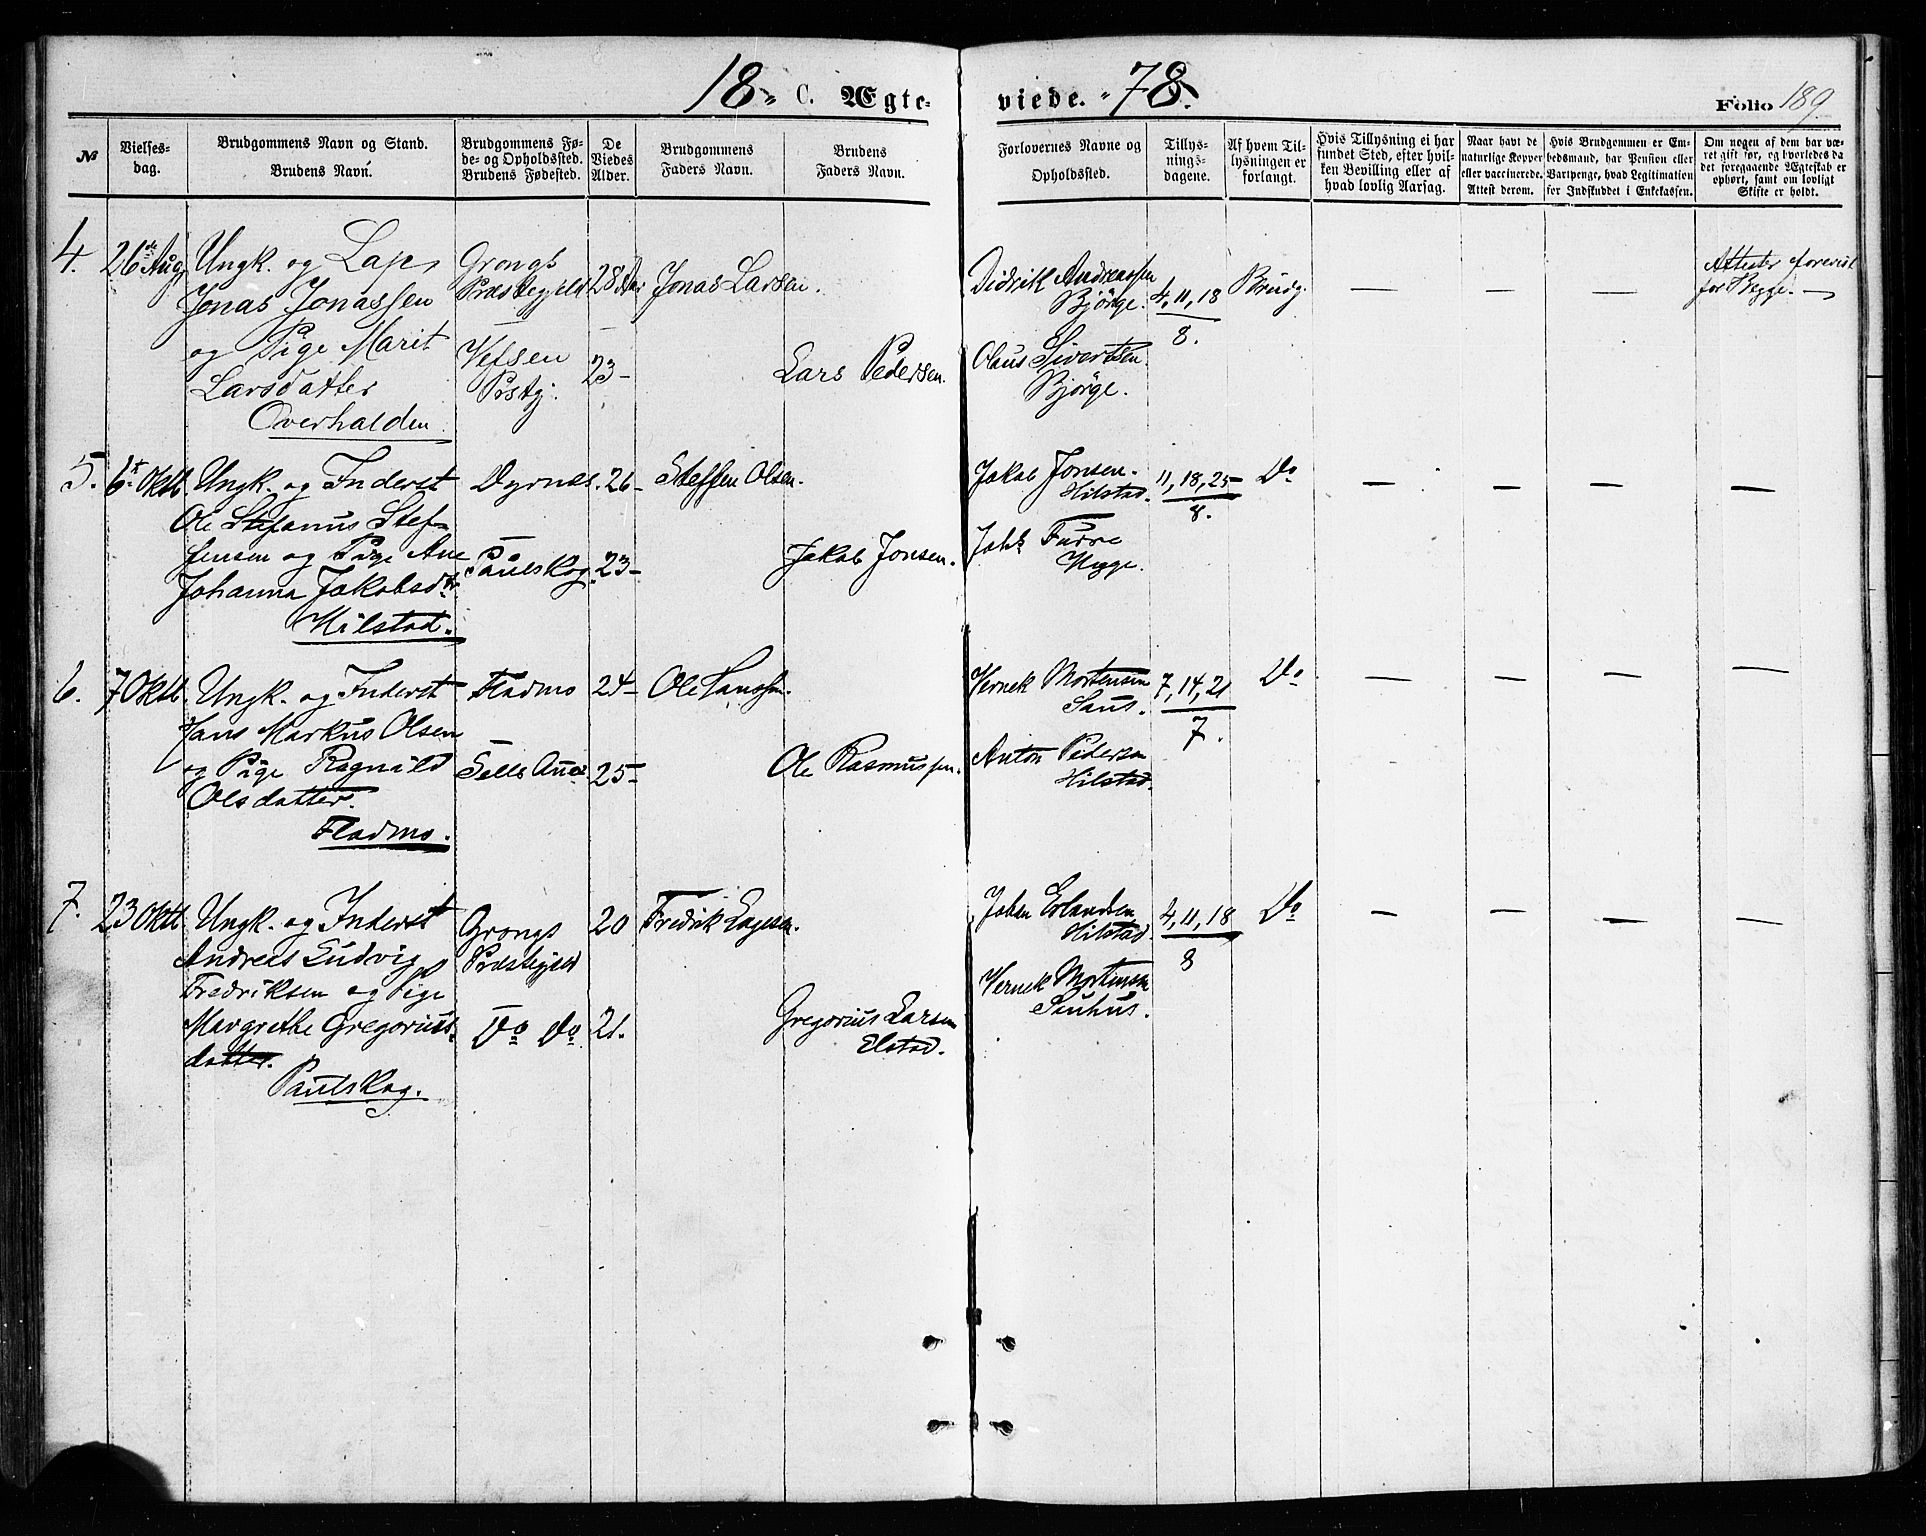 18 C. Ægte-
viede. 78.
Folio 189.
№
Vielses-
dag.
Brudgommens Navn og Stand.
Brudens Navn.
Brudgommens Fø-
de- og Opholdssted.
Brudens Fødested.
De
Viedes
Alder.
Brudgommens
Faders Navn.
Brudens
Faders Navn.
Forlovernes Navne og
Opholdssted.
Tillys-
nings-
dagene.
Af hvem Til-
lysningen er
forlangt.
Hvis Tillysning ei har
fundet Sted, efter hvil-
ken Bevilling eller af
hvad lovlig Aarsag.
Naar havt de
naturlige Kopper
eller vaccinerede.
Attest derom.
Hvis Brudgommen er Em-
bedsmand, har Pension eller
Vartpenge, hvad Legitimation
for Indskuddet i Enkekassen.
Om nogen af dem har væ-
ret gift før, og hvorledes da
det foregaaende Ægteskab er
ophørt, samt om lovligt
Skifte er holdt.
4.
26de Aug
Ungk. og Lap,
Jonas Jonassen
og Pige Marit
Larsdatter
Overhalden.
Grongs
Præstegjeld
Vefsen
Prstgj.
28 Aar
23-
Jonas Larsen.
Lars Pedersen.
Didrik Andreassen
Bjørge.
Olaus Sivertsen
Bjørge.
4, 11, 18
8.
Brudg.
—
—
—
Attester forevist
for Begge. —
5.
6t Oktb.
Ungk. og Inderst
Ole Stefanus Stef-
fensen og Pige Ane
Johanna Jakobsdtr
Hilstad.
Dyrnes.
Paulskog.
26-
23-
Steffen Olsen.
Jakob Jonsen.
Jakob Jonsen.
Hilstad.
Johs Furre
Hygge.
11, 18, 25
8.
Do
—
—
—
—
6.
7 Oktb.
Ungk. og Inderst
Hans Markus Olsen
og Pige Ragnild
Olsdatter.
Fladmo.
Fladmo
24-
25-
Ole Hanssen.
Ole Rasmussen.
Vernek Mortensen
Saus.
Anton Pedersen
Hilstad.
7, 14, 21
7.
Do
—
—
—
—
7.
23 Oktb.
Ungk. og Inderst
Andreas Ludvig
Fredriksen og Pige
Margrethe Gregorius-
datter.
Paulskog.
Grongs
Præstegjeld
Do Do
20
21.
Fredrik
Gregorius Larsen
Elstad.
Johan Erlandsen
Hilstad.
Vernek Mortensen
4, 11, 18
8
Do
—
—
—
—